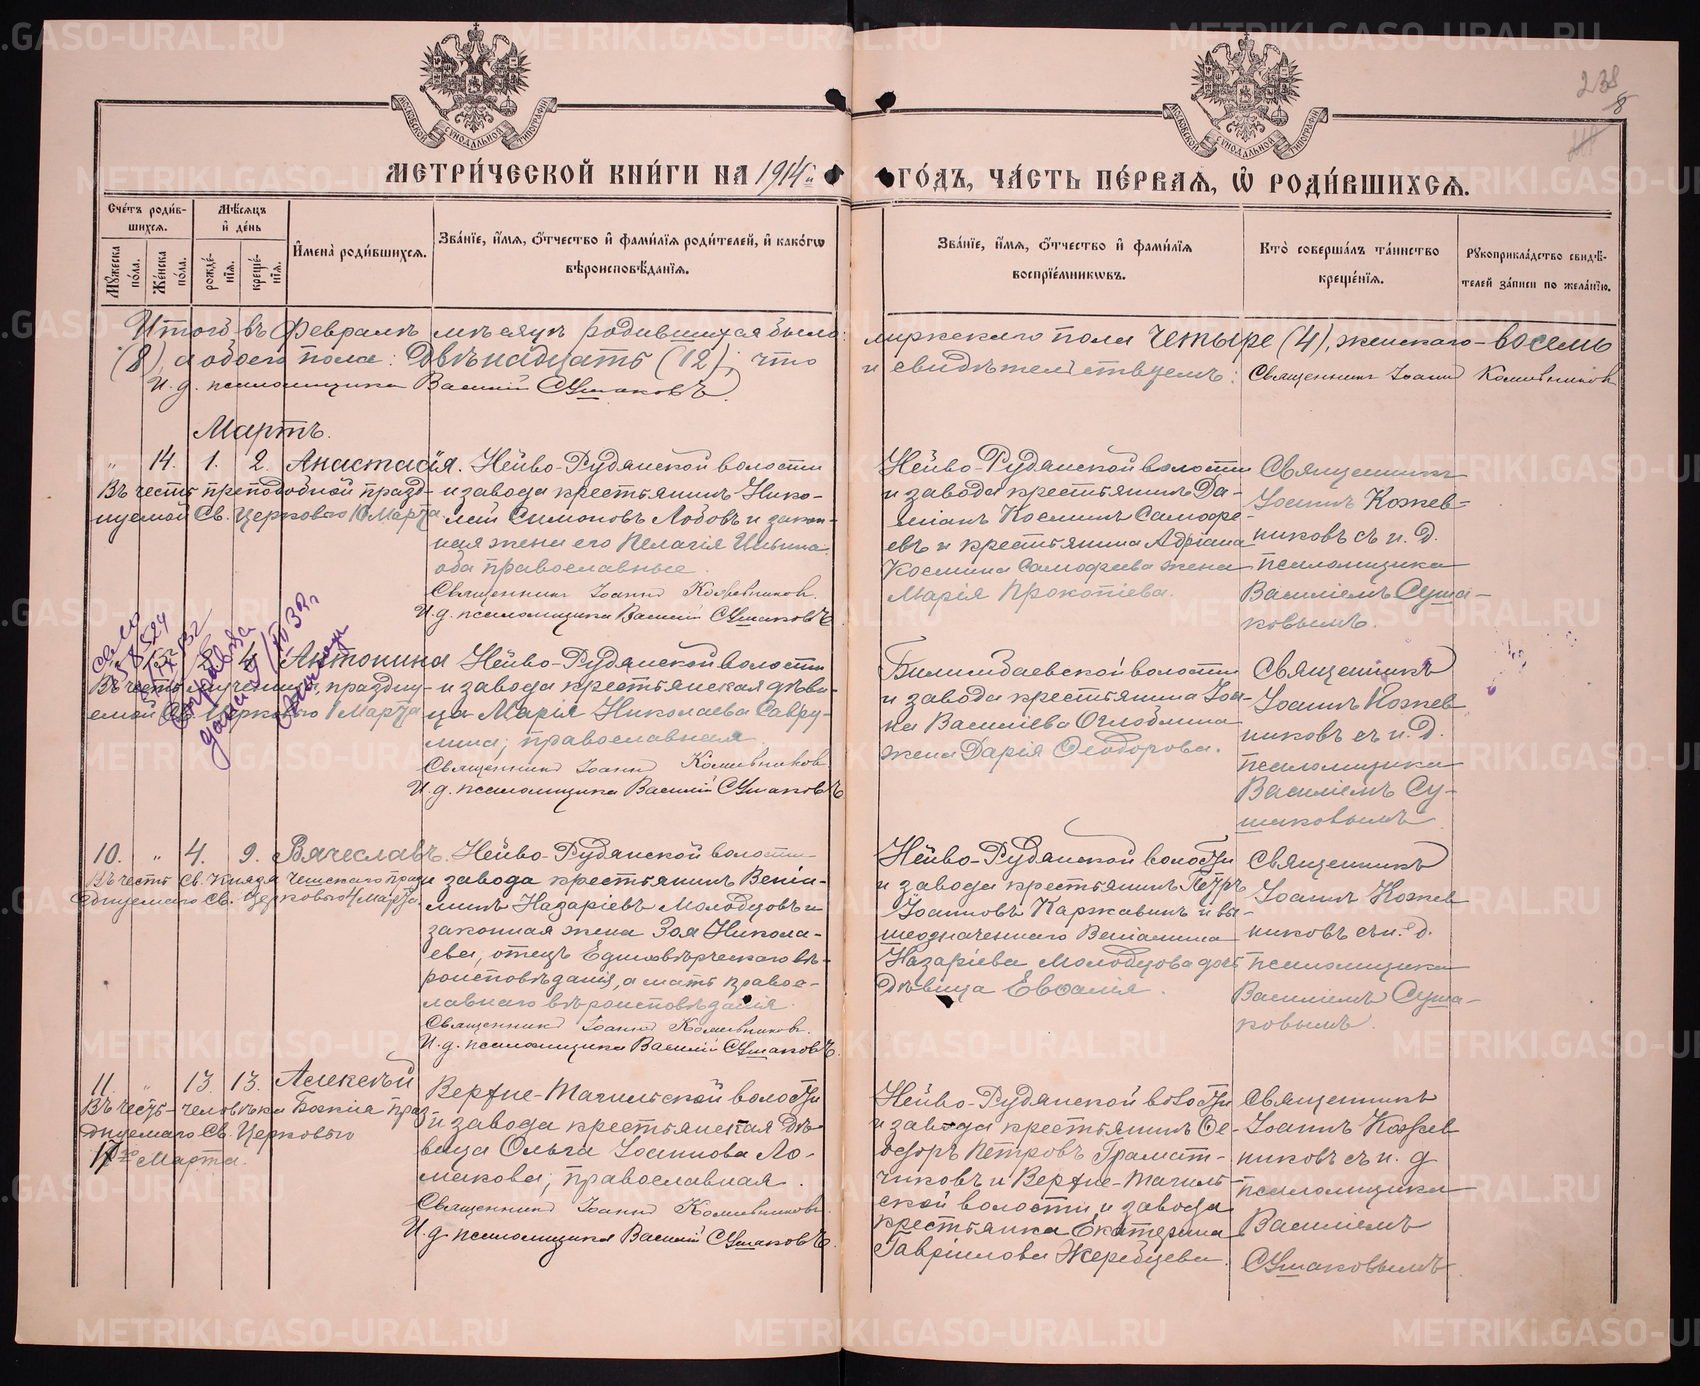 МЕТРИ́ЧЕСКОЙ КНИ́ГИ НА 1914й
ГО́ДЪ, ЧА́СТЬ ПЕ́РВАѦ, Ѡ҆ РОДИ́ВШИХСѦ.
238
8
Сче́тъ роди́в-
шихсѧ.
Мѣ́сѧцъ
и҆ де́нь
Мꙋ́жеска по́ла.
Же́нска по́ла.
рожде́-
нїѧ.
креще́-
нїѧ.
И҆мена̀ роди́вшихсѧ.
Зва́нїе, и҆́мѧ, ѻ҆́тчество и҆ фами́лїѧ роди́телей, и҆ како́гѡ
вѣроисповѣ́данїѧ.
Зва́нїе, и҆́мѧ, ѻ҆́тчество и҆ фами́лїѧ
воспрїе́мникѡвъ.
Кто̀ соверша́лъ та́инство
креще́нїѧ.
Рꙋкоприкла́дство свидѣ́-
телей за́писи по жела́нїю.
Итого въ Февралѣ мѣсяцѣ родившихся было:
мужескаго пола Четыре (4), женскаго - восемь
(8), а обоего пола: Двѣнадцать (12); что
и свидѣтельствуемъ: Священникъ Іоаннъ Кожевниковъ
И. д. псаломщика Василій Сушаковъ.
Мартъ.
" 14. 1. 2. Анастасія.
Въ честь преподобной празд-
нуемой Св. Церковью 10 Марта
Нейво-Рудянской волости
и завода крестьянинъ Нико-
лай Симоновъ Лобовъ и закон-
ная жена его Пелагія Ильина
оба православные.
Священникъ Іоаннъ Кожевниковъ.
И. д. псаломщика Василій Сушаковъ.
Нейво-Рудянской волости
и завода крестьянинъ Да-
міанъ Косминъ Самофе-
евъ и крестьянина Адріана
Космина Самофеева жена
Марія Прокопіева.
Священникъ
Іоаннъ Кожев-
никовъ съ и. д.
псаломщика
Василіемъ Суша-
ковымъ.
Антонина
Въ честь мученицы, праздну-
емой Св. Церковью 1 Марта
Нейво-Рудянской волости
и завода крестьянская дѣви-
ца Марія Николаева Савру-
лина; православная
Священникъ Іоаннъ Кожевниковъ
И. д. псаломщика Василій Сушаковъ
Билимбаевской волости
и завода крестьянина Іоан-
на Василіева Оглоблина
жена Дарія Ѳеодорова.
Священникъ
Іоаннъ Кожев
никовъ съ и. д.
псаломщика
Василіемъ Су-
шаковымъ
10. " 4. 9. Вячеславъ.
Въ честь Св. Князя Чешскаго праз
днуемаго Св. Церковью 4 Марта.
Нейво-Рудянской волости
и завода крестьянинъ Веніа-
минъ Назаріевъ Молодцовъ и
законная жена Зоя Никола-
ева, отецъ Единовѣрческаго вѣ-
роисповѣданія, а мать правос-
лавнаго вѣроисповѣданія.
Священникъ Іоаннъ Кожевниковъ.
И. д. псаломщика Василій Сушаковъ.
Нейво-Рудянской волости
и завода крестьянинъ Петръ
Іоанновъ Каржавинъ и вы-
шеозначеннаго Веніамина
Назаріева Молодцова дочь
Дѣвица Евѳалія.
Священникъ
Іоаннъ Кожев
никовъ съ и. д.
псаломщика
Василіемъ Суша-
ковымъ.
11. " 13. 13. Алексѣй
Въ честь - человѣка Божія праз
днуемаго Св. Церковью
17го Марта.
Верхне-Тагильской волости
и завода крестьянская Дѣ-
вица Ольга Іоаннова Ло-
макова; православная.
Священникъ Іоаннъ Кожевниковъ.
И. д. псаломщика Василій Сушаковъ.
Нейво-Рудянской волости
и завода крестьянинъ Ѳе-
одоръ Петровъ Грамат-
чиковъ и Верхне-Тагиль-
ской волости и завода
крестьянка Екатерина
Гавріилова Жеребцева.
Священникъ
Іоаннъ Кожев
никовъ съ и. д
псаломщика
Василіемъ
Сушаковымъ